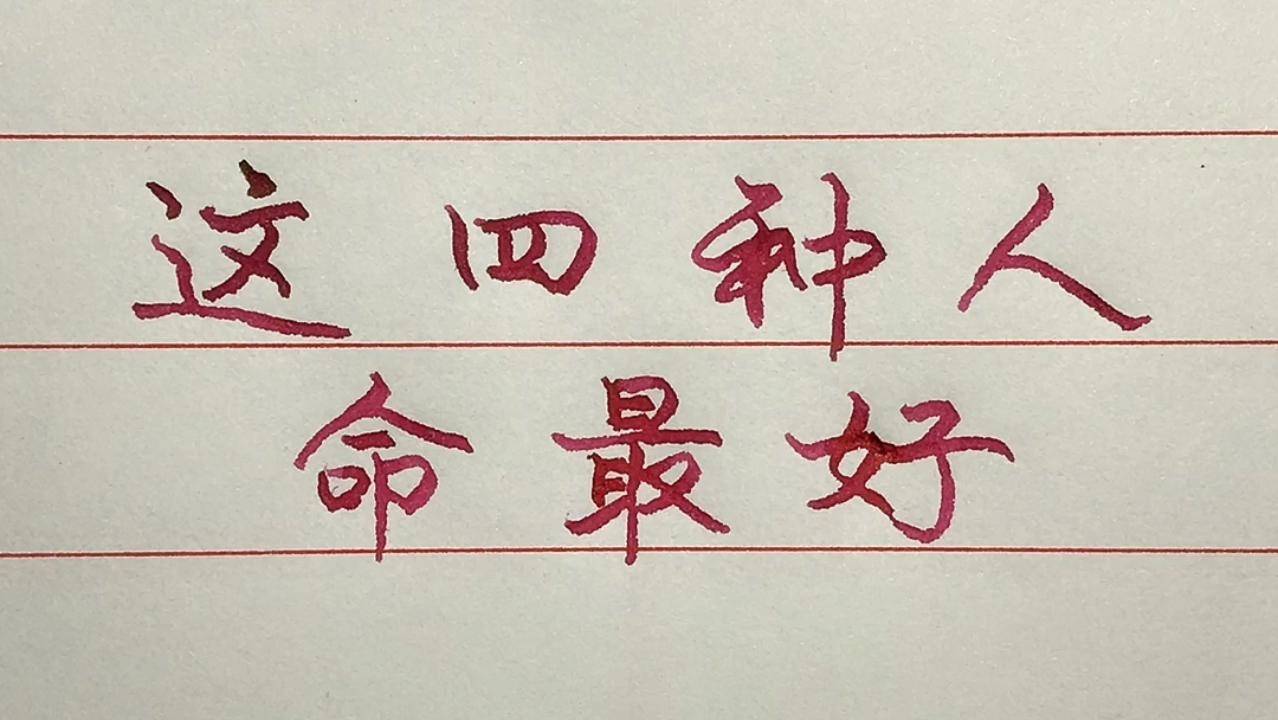 这四种人
命最好